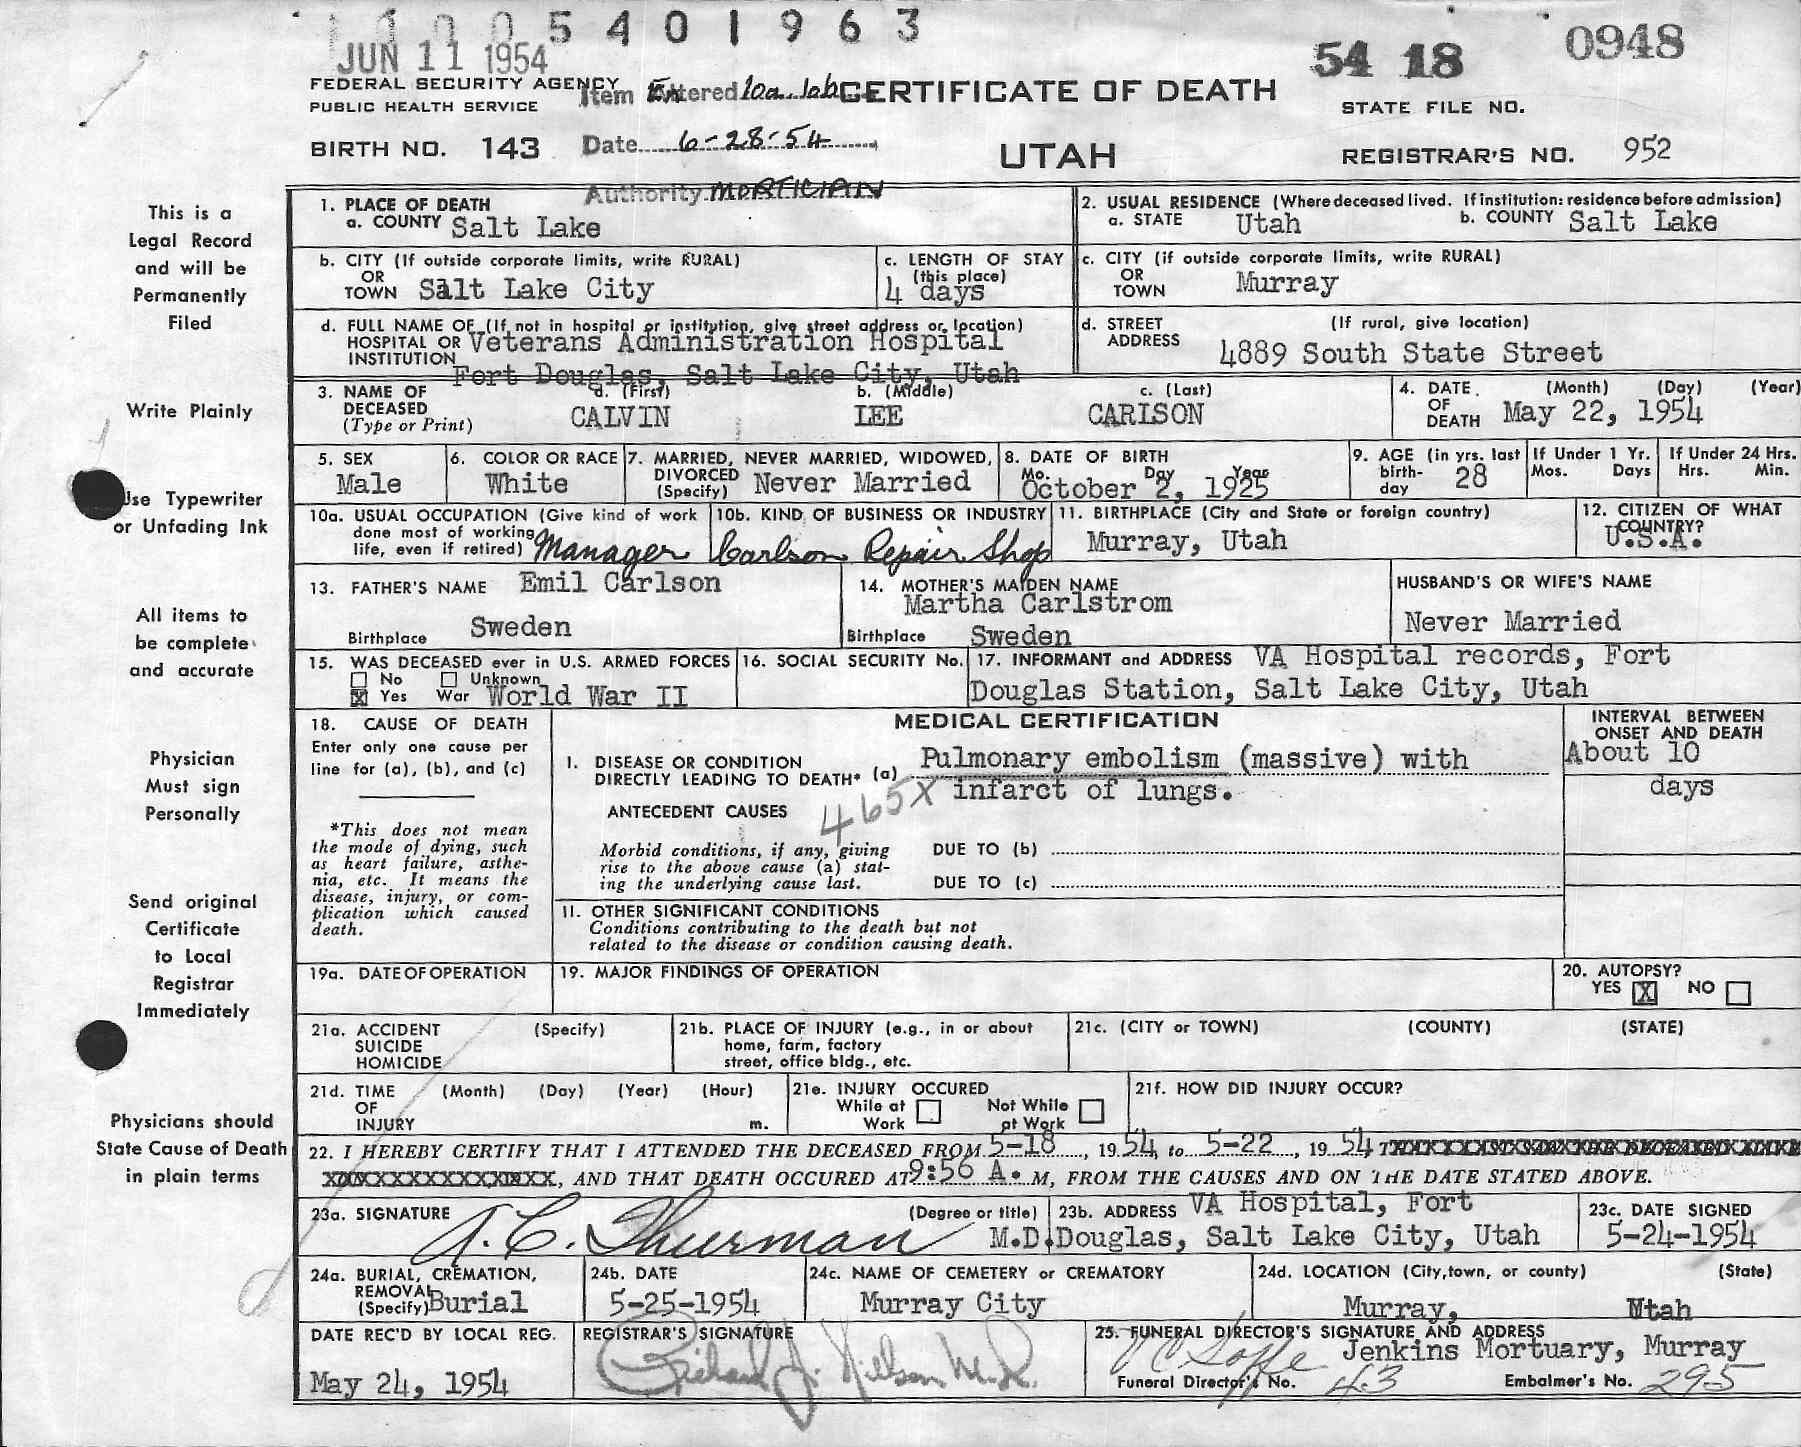 1 1 0 0 5 4 0 1 9 6 3
JUN 11 1954
54 18 0948
FEDERAL SECURITY AGENCY
PUBLIC HEALTH SERVICE
Item Entered 10a. 10b
CERTIFICATE OF DEATH
STATE FILE NO.
BIRTH NO. 143
Date 6-28-54
UTAH
REGISTRAR'S NO. 952
Authority MORTICIAN
This is a
Legal Record
and will be
Permanently
Filed
Write Plainly
Use Typewriter
or Unfading Ink
All items to
be complete
and accurate
Physician
Must sign
Personally
Send original
Certificate
to Local
Registrar
Immediately
Physicians should
State Cause of Death
in plain terms
1. PLACE OF DEATH
a. COUNTY Salt Lake
2. USUAL RESIDENCE (Where deceased lived. If institution: residence before admission)
a. STATE Utah b. COUNTY Salt Lake
b. CITY (If outside corporate limits, write RURAL)
OR
TOWN Salt Lake City
c. LENGTH OF STAY
(this place)
4 days
c. CITY (if outside corporate limits, write RURAL)
OR
TOWN Murray
d. FULL NAME OF (If not in hospital or institution, give street address or location)
HOSPITAL OR Veterans Administration Hospital
INSTITUTION Fort Douglas, Salt Lake City, Utah
d. STREET (If rural, give location)
ADDRESS 4889 South State Street
3. NAME OF a. (First) b. (Middle) c. (Last)
DECEASED CALVIN LEE CARLSON
(Type or Print)
4. DATE (Month) (Day) (Year)
OF
DEATH May 22, 1954
5. SEX
Male
6. COLOR OR RACE
White
7. MARRIED, NEVER MARRIED, WIDOWED,
DIVORCED
(Specify) Never Married
8. DATE OF BIRTH
Mo. Day Year
October 2, 1925
9. AGE (in yrs. last
birth-
day 28
If Under 1 Yr.
Mos. Days
If Under 24 Hrs.
Hrs. Min.
10a. USUAL OCCUPATION (Give kind of work
done most of working
life, even if retired) Manager
10b. KIND OF BUSINESS OR INDUSTRY
Carlson Repair Shop
11. BIRTHPLACE (City and State or foreign country)
Murray, Utah
12. CITIZEN OF WHAT
COUNTRY?
U.S.A.
13. FATHER'S NAME Emil Carlson
Birthplace Sweden
14. MOTHER'S MAIDEN NAME
Martha Carlstrom
Birthplace Sweden
HUSBAND'S OR WIFE'S NAME
Never Married
15. WAS DECEASED ever in U.S. ARMED FORCES
No Unknown
X Yes War World War II
16. SOCIAL SECURITY No.
17. INFORMANT and ADDRESS VA Hospital records, Fort
Douglas Station, Salt Lake City, Utah
18. CAUSE OF DEATH
Enter only one cause per
line for (a), (b), and (c)
*This does not mean
the mode of dying, such
as heart failure, asthe-
nia, etc. It means the
disease, injury, or com-
plication which caused
death.
MEDICAL CERTIFICATION
INTERVAL BETWEEN
ONSET AND DEATH
I. DISEASE OR CONDITION
DIRECTLY LEADING TO DEATH* (a) Pulmonary embolism (massive) with
infarct of lungs.
About 10
days
465X
ANTECEDENT CAUSES
Morbid conditions, if any, giving
rise to the above cause (a) stat-
ing the underlying cause last.
DUE TO (b)
DUE TO (c)
II. OTHER SIGNIFICANT CONDITIONS
Conditions contributing to the death but not
related to the disease or condition causing death.
19a. DATE OF OPERATION
19. MAJOR FINDINGS OF OPERATION
20. AUTOPSY?
YES X NO
21a. ACCIDENT (Specify)
SUICIDE
HOMICIDE
21b. PLACE OF INJURY (e.g., in or about
home, farm, factory
street, office bldg., etc.
21c. (CITY or TOWN) (COUNTY) (STATE)
21d. TIME (Month) (Day) (Year) (Hour)
OF
INJURY m.
21e. INJURY OCCURED
While at Not While
Work at Work
21f. HOW DID INJURY OCCUR?
22. I HEREBY CERTIFY THAT I ATTENDED THE DECEASED FROM 5-18, 1954, to 5-22, 1954
, AND THAT DEATH OCCURED AT 9:56 A. M, FROM THE CAUSES AND ON THE DATE STATED ABOVE.
23a. SIGNATURE (Degree or title)
A. C. Thurman M.D.
23b. ADDRESS VA Hospital, Fort
Douglas, Salt Lake City, Utah
23c. DATE SIGNED
5-24-1954
24a. BURIAL, CREMATION,
REMOVAL
(Specify) Burial
24b. DATE
5-25-1954
24c. NAME OF CEMETERY or CREMATORY
Murray City
24d. LOCATION (City, town, or county) (State)
Murray, Utah
DATE REC'D BY LOCAL REG.
May 24, 1954
REGISTRAR'S SIGNATURE
Richard J. Nielson M.D.
25. FUNERAL DIRECTOR'S SIGNATURE AND ADDRESS
Jenkins Mortuary, Murray
Funeral Director's No. 43 Embalmer's No. 295